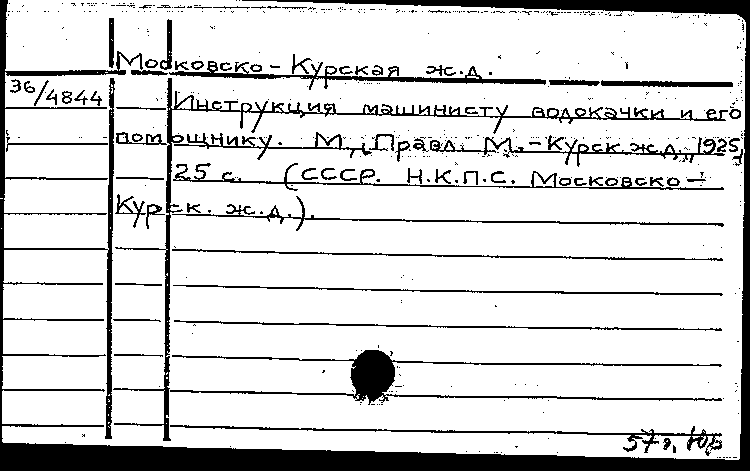 Московско-Курская ж.д.
36/4844
Инструкция машинисту водокачки и его
помощнику. М., "Правл. М.-Курск.ж.д.", 1925,
25 с. (СССР. Н.К.П.С. Московско-
Курск. ж.д.).
57г.